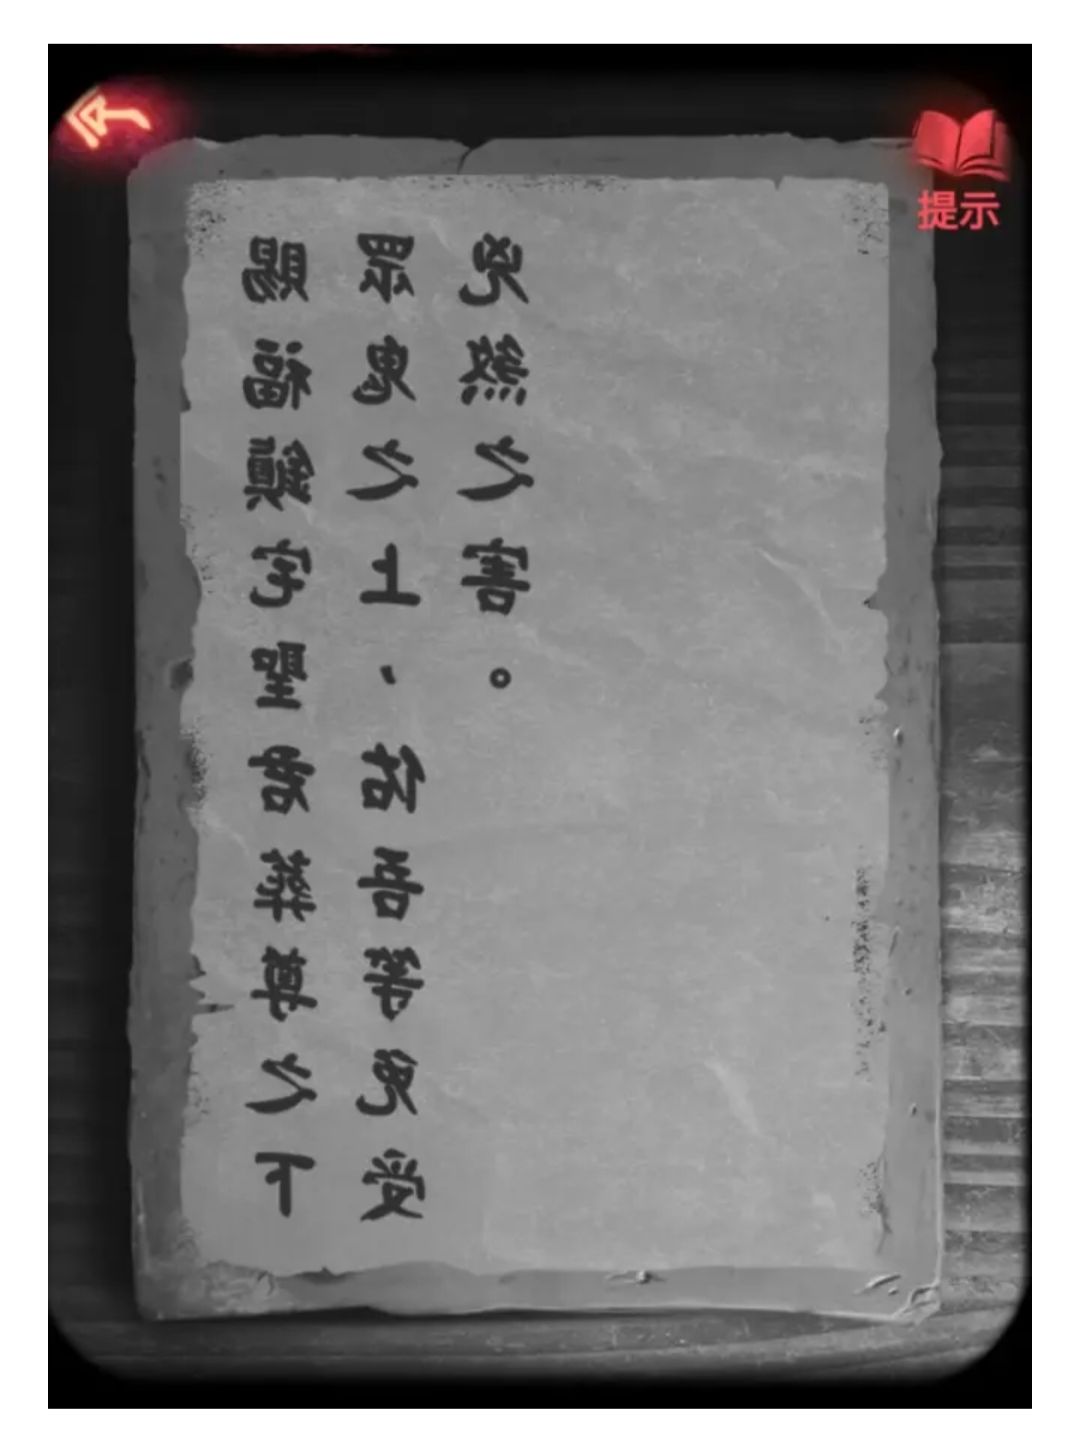 提示
賜福鎮宅聖君葬尊之下
眾鬼之上，佑吾等免受
兇煞之害。